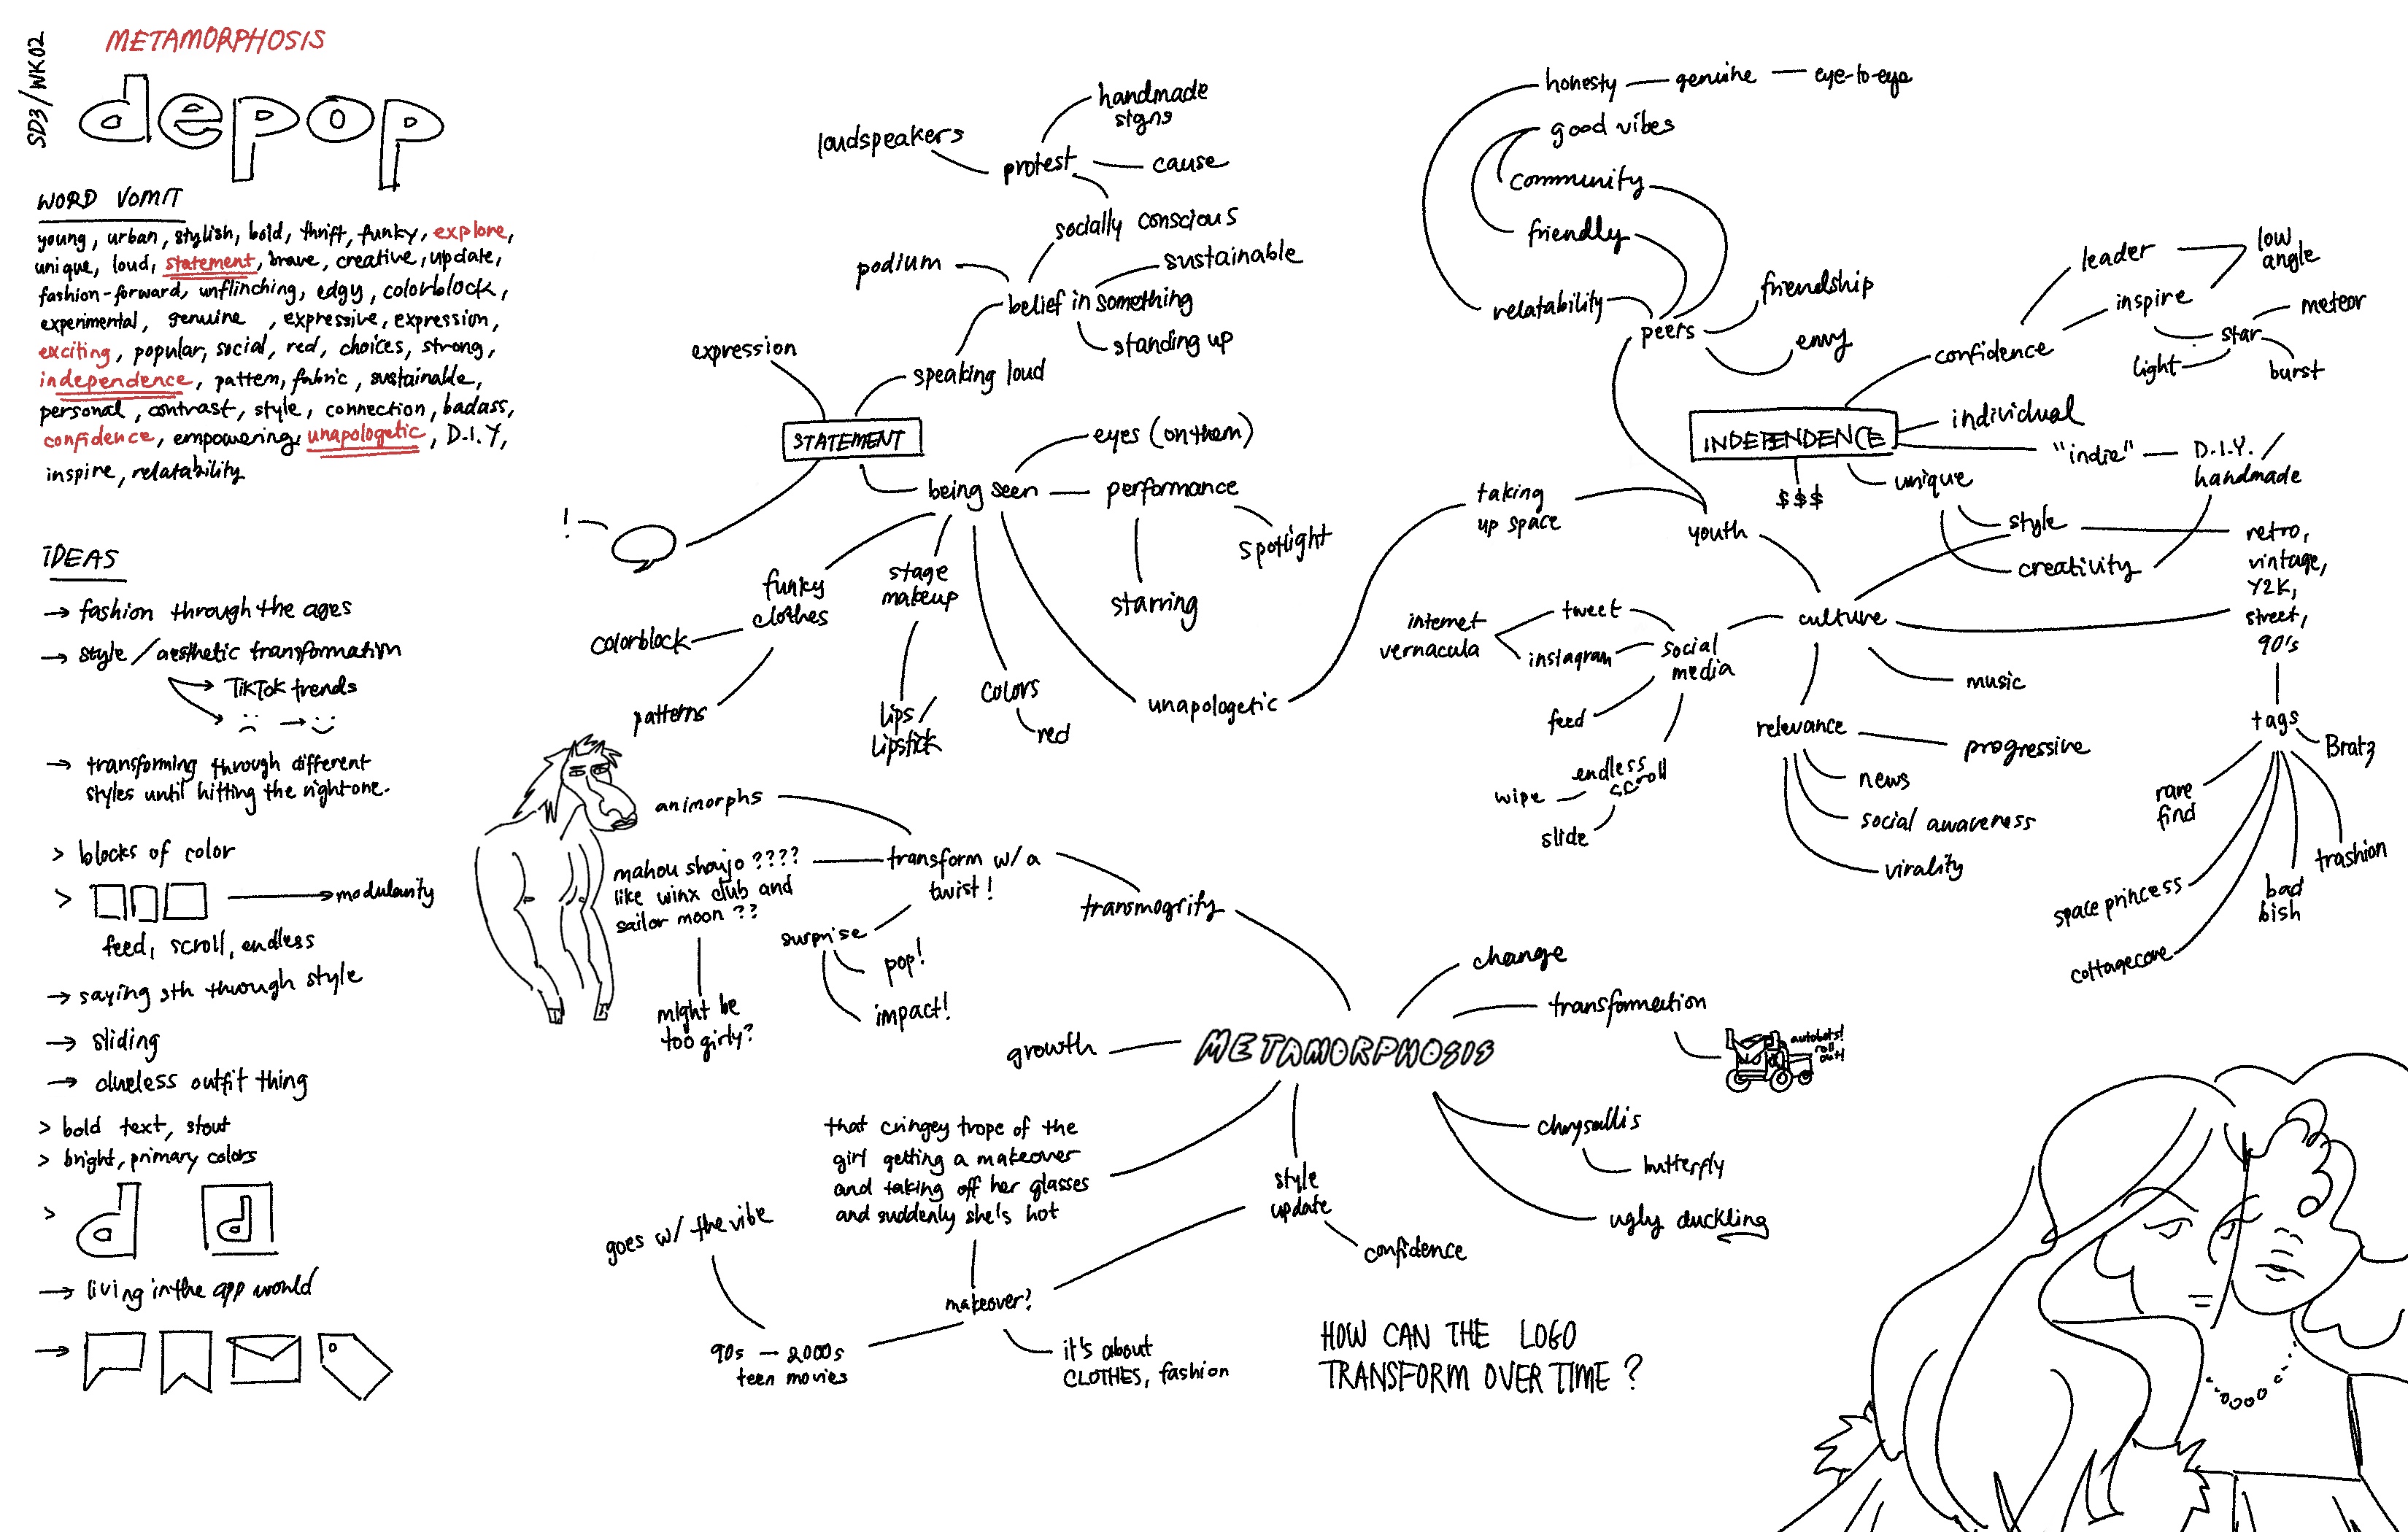 SD3/WK02
METAMORPHOSIS
depop
WORD VOMIT
young, urban, stylish, bold, thrift, funky, explore,
unique, loud, statement, brave, creative, update,
fashion-forward, unflinching, edgy, colorblock,
experimental, genuine, expressive, expression,
exciting, popular, social, red, choices, strong,
independence, pattern, fabric, sustainable,
personal, contrast, style, connection, badass,
confidence, empowering, unapologetic, D.I.Y,
inspire, relatability
IDEAS
→ fashion through the ages
→ style/aesthetic transformation
→ TikTok trends
→ :( → :)
→ transforming through different
styles until hitting the right one.
> blocks of color
> → modularity
feed, scroll, endless
→ saying sth through style
→ sliding
→ clueless outfit thing
> bold text, stout
> bright, primary colors
> d d
→ living in the app world
→
loudspeakers
handmade
signs
protest
cause
socially conscious
podium
sustainable
belief in something
standing up
expression
speaking loud
STATEMENT
eyes (on them)
being seen
performance
spotlight
starring
!
funky
clothes
colorblock
patterns
stage
makeup
lips/
lipstick
colors
red
unapologetic
taking
up space
honesty — genuine — eye-to-eye
good vibes
community
friendly
relatability
peers
friendship
envy
youth
leader
low
angle
inspire
confidence
star
meteor
light
burst
INDEPENDENCE
individual
"indie" — D.I.Y./
handmade
$$$
unique
style
creativity
retro,
vintage,
Y2K,
street,
90's
culture
internet
vernacula
tweet
instagram
social
media
feed
endless
scroll
wipe
slide
music
relevance
progressive
news
social awareness
virality
tags
Bratz
rare
find
space princess
cottagecore
bad
bish
trashion
animorphs
mahou shoujo ????
like winx club and
sailor moon ??
might be
too girly?
transform w/ a
twist!
surprise
pop!
impact!
transmogrify
METAMORPHOSIS
change
transformation
autobots!
roll
out!
growth
chrysallis
butterfly
ugly duckling
style
update
confidence
that cringey trope of the
girl getting a makeover
and taking off her glasses
and suddenly she's hot
makeover?
goes w/ the vibe
90s — 2000s
teen movies
it's about
CLOTHES, fashion
HOW CAN THE LOGO
TRANSFORM OVER TIME?